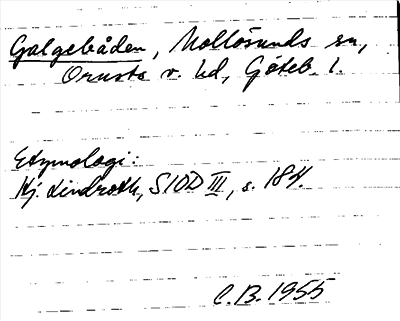 Galgebåden, Mollösunds sn,
Orusts v. hd, Göteb. l.
Etymologi:
Hj. Lindroth, SIOD III, s. 184.
C.B. 1955